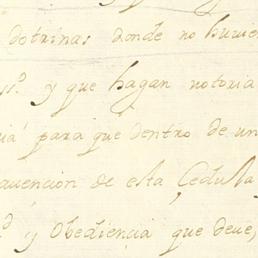 dotrinas donde no huvier
ss.º y que hagan notoria
uia para que dentro de un
auencion de esta Cedula
d y Obediencia que deve,